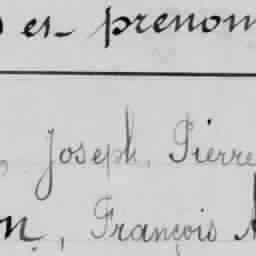 et prenom
, Joseph, Pierre
on, François A